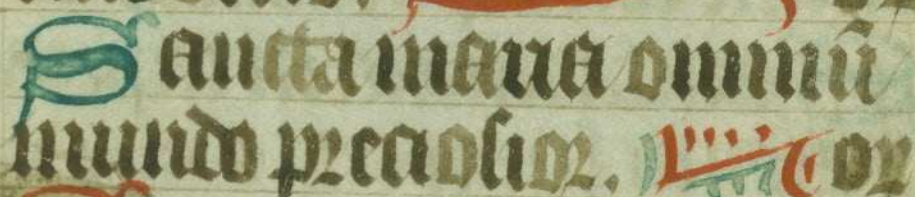 Sancta maria omniū
mundo preciosior. or